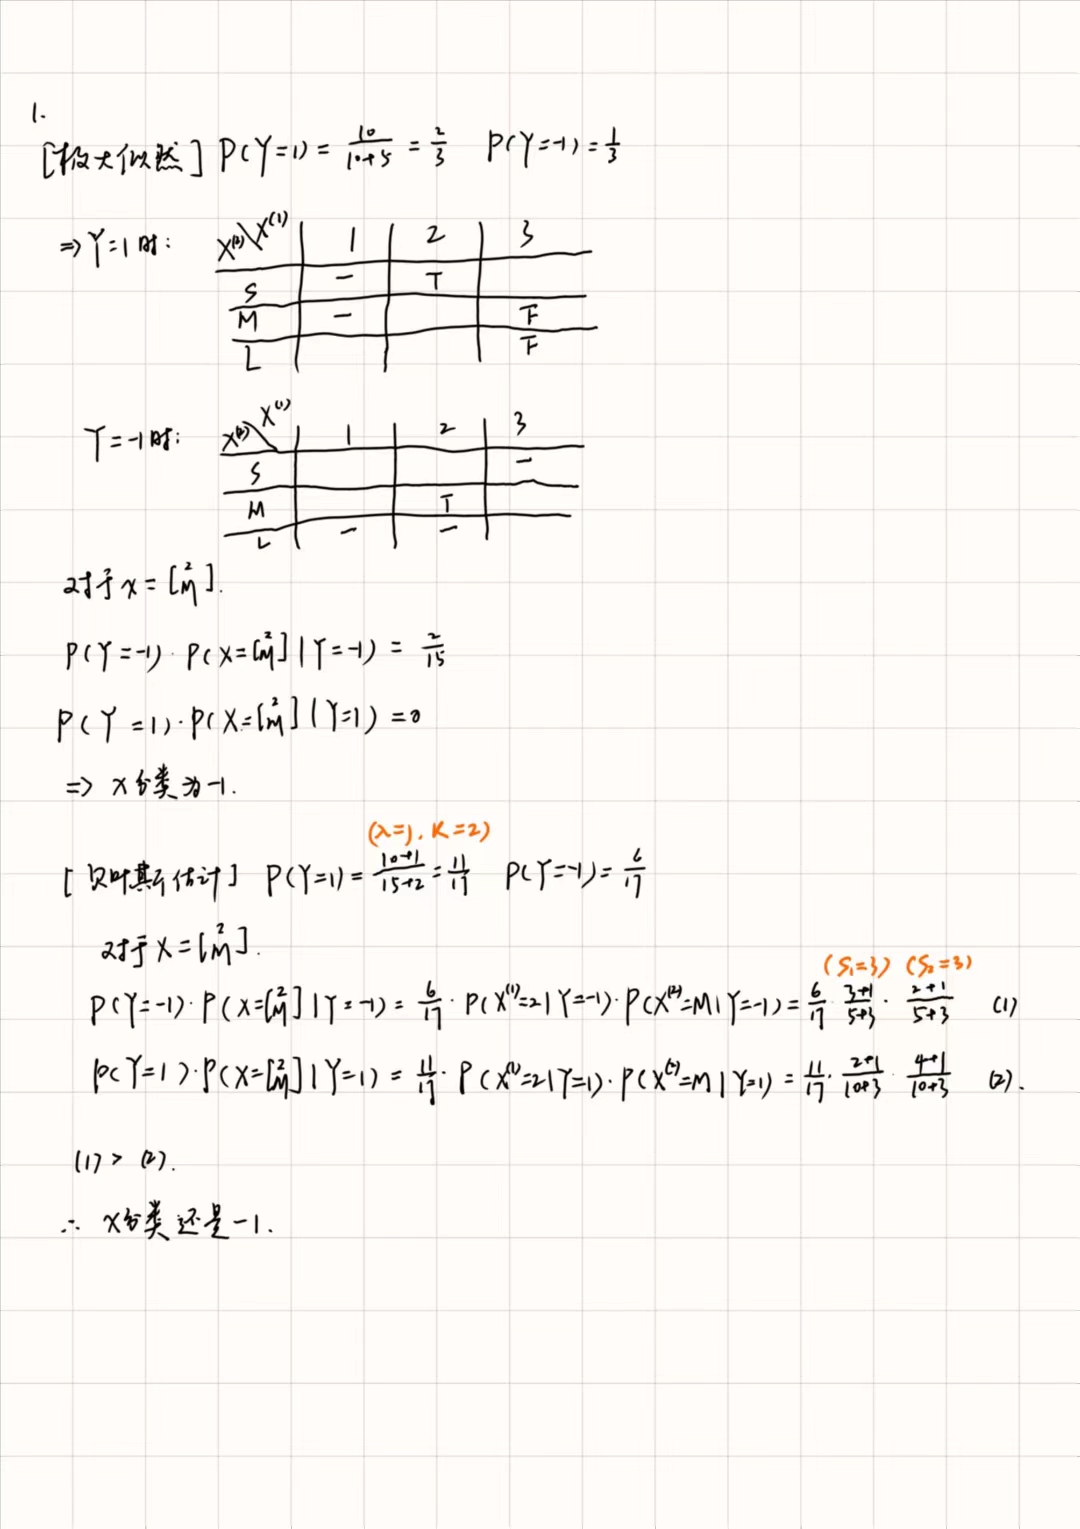 1.
[极大似然] P(Y=1) = 10/(10+5) = 2/3 P(Y=-1) = 1/3
⇒ Y=1时: X⁽²⁾\X⁽¹⁾ 1 2 3
S 一 T
M 一 F
L F
Y=-1时: X⁽²⁾\X⁽¹⁾ 1 2 3
S 一
M T
L 一 一
对于 x = [2 M].
P(Y=-1)·P(X=[2 M]|Y=-1) = 2/15
P(Y=1)·P(X=[2 M]|Y=1) = 0
⇒ X分类为-1.
(λ=1, K=2)
[贝叶斯估计] P(Y=1) = (10+1)/(15+2) = 11/17 P(Y=-1) = 6/17
对于 X = [2 M].
(S₁=3) (S₂=3)
P(Y=-1)·P(X=[2 M]|Y=-1) = 6/17 · P(X⁽¹⁾=2|Y=-1)·P(X⁽²⁾=M|Y=-1) = 6/17 · (3+1)/(5+3) · (2+1)/(5+3) (1)
P(Y=1)·P(X=[2 M]|Y=1) = 11/17 · P(X⁽¹⁾=2|Y=1)·P(X⁽²⁾=M|Y=1) = 11/17 · (2+1)/(10+3) · (4+1)/(10+3) (2).
(1) > (2).
∴ X分类还是-1.